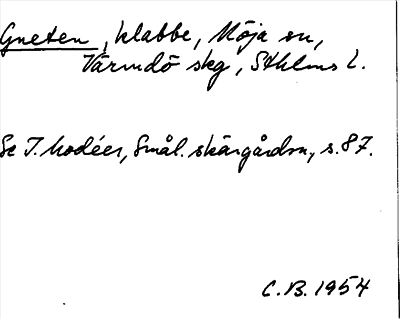 Gneten, klabbe, Möja sn,
Värmdö skg, Sthlms l.
Se T. Modéer, Smål. skärgårdsn, s. 87.
C.B. 1954